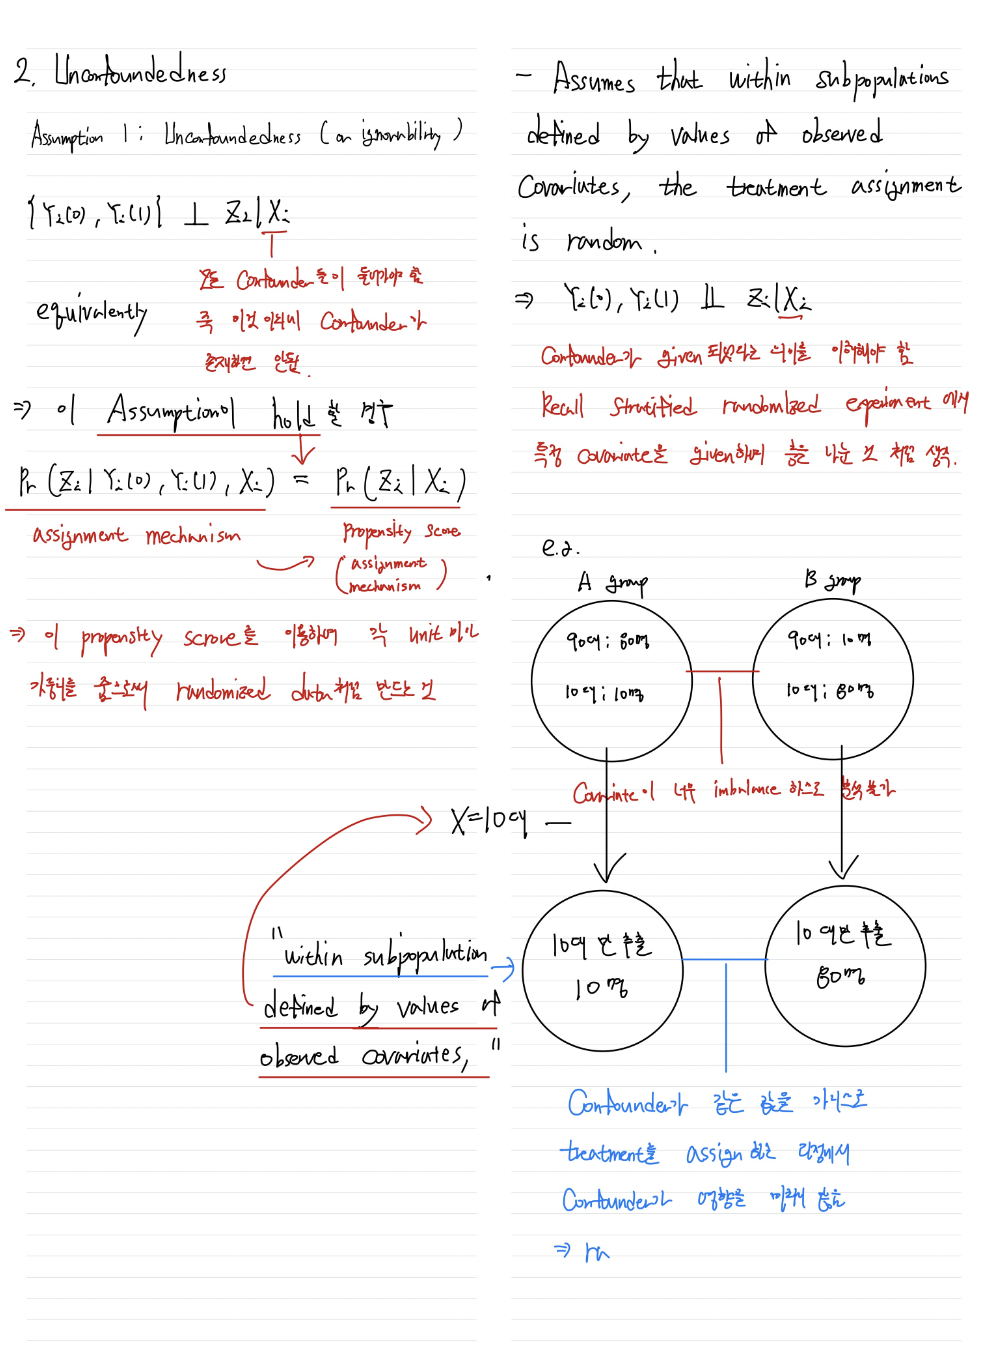 2. Unconfoundedness
Assumption 1 : Unconfoundedness ( or ignorability )
{Yi(0), Yi(1)} ⊥ Zi | Xi
모든 Confounder들이 들어가야 함
즉 이것 이외에 Confounder가
존재하면 안됨.
equivalently
⇒ 이 Assumption이 hold 할 경우
Pr ( Zi | Yi(0), Yi(1), Xi ) = Pr ( Zi | Xi )
assignment mechanism
Propensity score
( assignment mechanism )
⇒ 이 propensity score를 이용하여 각 unit 마다
가중치를 줌으로써 randomized data처럼 만드는 것
- Assumes that within subpopulations
defined by values of observed
Covariates, the treatment assignment
is random.
⇒ Yi(0), Yi(1) ⊥⊥ Zi | Xi
Confounder가 given 되었다는 의미를 이해해야 함
Recall Stratified randomized experiment 에서
특정 covariate을 given하여 층을 나눈 것 처럼 생각.
e.g.
A group
B group
90대 ; 80명
10대 ; 10명
90대 ; 10명
10대 ; 80명
Covariate이 너무 imbalance 하므로 분석불가
X=10대 —
"within subpopulation
defined by values of
observed covariates, "
10대 만 추출
10명
10 대만 추출
80명
Confounder가 같은 값을 가지므로
treatment를 assign 하는 과정에서
Confounder가 영향을 미치지 않음
⇒ rn